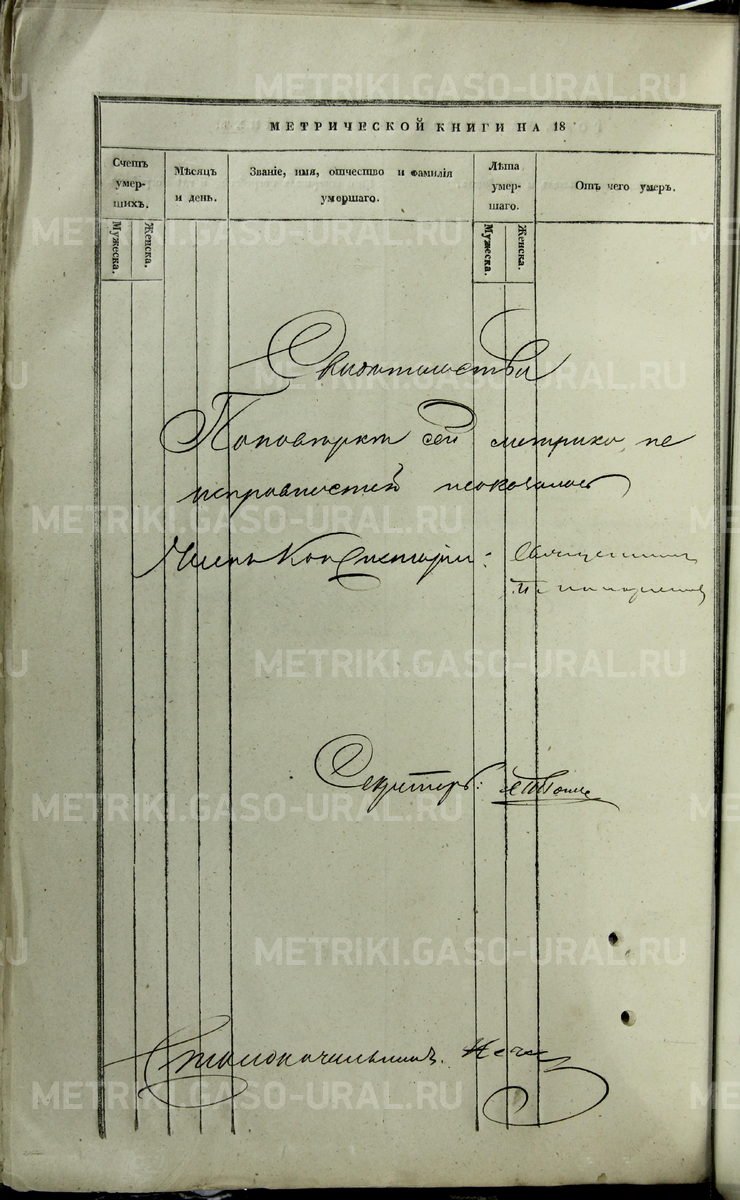 МЕТРИЧЕСКОЙ КНИГИ НА 18
Счетъ умер- шихъ.
Мужеска.
Женска.
Мѣсяцъ и день.
Званіе, имя, отчество и фамилія умершаго.
Лѣта умер- шаго.
Мужеска.
Женска.
Отъ чего умеръ.
Свидѣтельство
По поверкѣ сей метрики, не
исправностей неоказалось
Членъ Консисторіи: Священникъ
Секретарь:
Столоначальникъ
METRIKI.GASO-URAL.RU